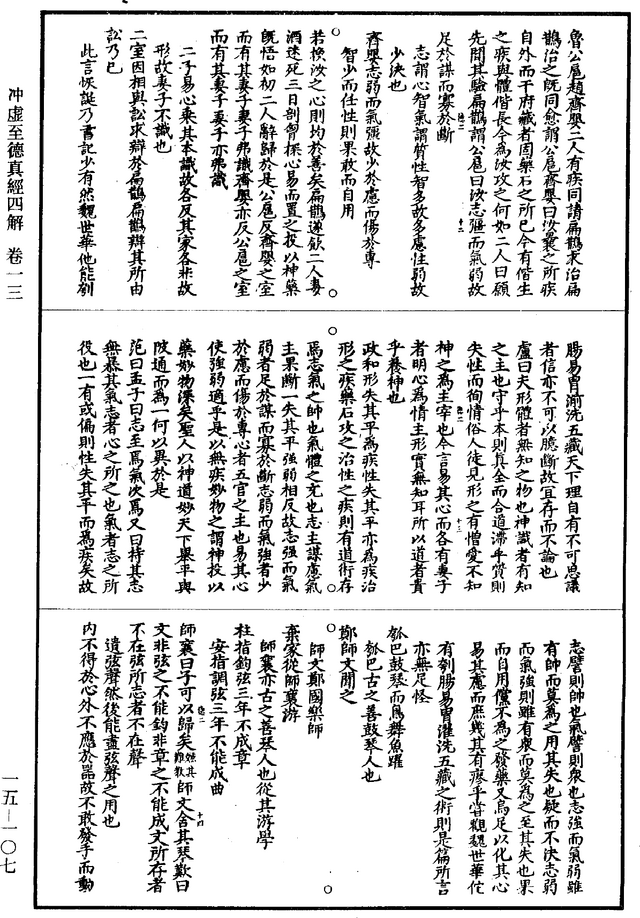 冲虛至德真經四解 卷一三
一五—一〇七
魯公扈趙齊嬰二人有疾同請扁鵲求治扁
鵲治之既同愈謂公扈齊嬰曰汝曩之所疾
自外而干府藏者固藥石之所已今有偕生
之疾與體偕長今為汝攻之何如二人曰願
先聞其驗扁鵲謂公扈曰汝志彊而氣弱故
足於謀而寡於斷
志謂心智氣謂質性智多故多慮性弱故
少決也
齊嬰志弱而氣彊故少於慮而傷於專
智少而任性則果敢而自用
若換汝之心則均於善矣扁鵲遂飲二人毒
酒迷死三日剖胷探心易而置之投以神藥
既悟如初二人辭歸於是公扈反齊嬰之室
而有其妻子妻子弗識齊嬰亦反公扈之室
而有其妻子妻子亦弗識
二子易心乘其本識故各反其家各非故
形故妻子不識也
二室因相與訟求辯於扁鵲扁鵲辯其所由
訟乃已
此言恢誕乃書記少有然魏世華他能刳
腸易胃湔洗五藏天下理自有不可思議
者信亦不可以臆斷故宜存而不論也
盧曰夫形體者無知之物也神識者有知
之主也守乎本則真全而合道滯乎質則
失性而徇情俗人徒見形之有憎愛不知
神之為主宰也今言易其心而各有妻子
者明心為情主形實無知耳所以道者貴
乎養神也
政和形失其平為疾性失其平亦為疾治
形之疾藥石攻之治性之疾則有道術存
焉志氣之帥也氣體之充也志主謀慮氣
主果斷一失其平強弱相反故志強而氣
弱者足於謀而寡於斷志弱而氣強者少
於慮而傷於專心者五官之主也易其心
使強弱適乎是以無疾妙物之謂神投以
藥妙物深矣聖人以神道妙天下舉平與
陂通而為一何以異於是
范曰孟子曰志至焉氣次焉又曰持其志
無暴其氣志者心之所之也氣者志之所
役也一有或偏則性失其平而為疾矣故
志譬則帥也氣譬則衆也志強而氣弱雖
有帥而莫為之用其失也疑而不決志弱
而氣強則雖有衆而莫為之至其失也果
而自用儻不為之發藥又烏足以化其心
易其慮而庶幾其有瘳乎嘗觀魏世華佗
有刳腸易胃湔洗五藏之術則是篇所言
亦無足怪
瓠巴鼓琴而鳥舞魚躍
瓠巴古之善鼓琴人也
鄭師文聞之
師文鄭國樂師
棄家從師襄游
師襄亦古之善琴人也從其游學
柱指鈞弦三年不成章
安指調弦三年不能成曲
師襄曰子可以歸矣師文舍其琴歎曰
文非弦之不能鈞非章之不能成文所存者
不在弦所志者不在聲
遺弦聲然後能盡弦聲之用也
內不得於心外不應於器故不敢發手而動